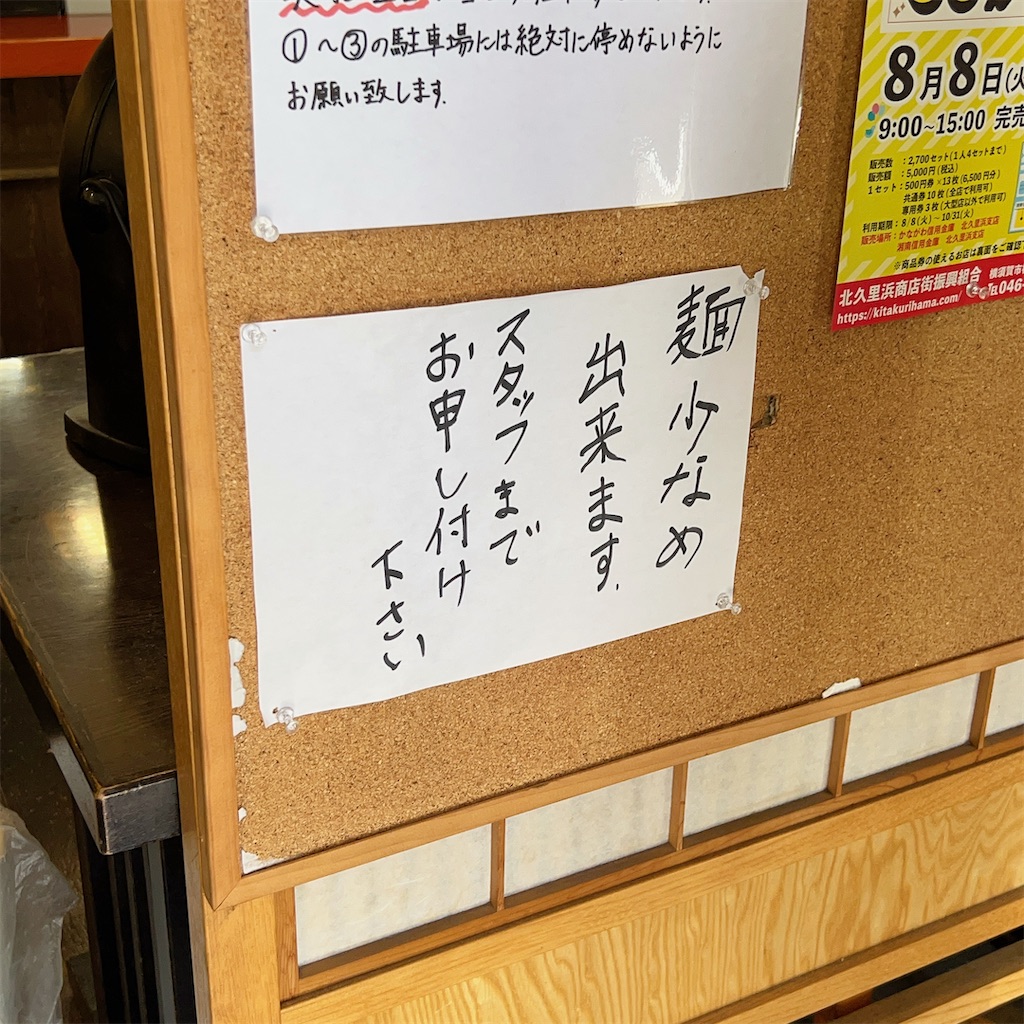 ①～③の駐車場には絶対に停めないように
お願い致します.
麺少なめ
出来ます.
スタッフまで
お申し付け
下さい
8月8日(火
9:00~15:00 完売
販売数 :2,700セット(1人4セットまで)
販売額 :5,000円(税込)
1セット:500円券×13枚(6,500円分)
共通券10枚(全店で利用可)
専用券3枚(大型店以外で利用可)
利用期限:8/8(火)~10/31(火)
販売場所:かながわ信用金庫 北久里浜支店
湘南信用金庫 北久里浜支店
※商品券の使えるお店は裏面をご確認
北久里浜商店街振興組合 横須賀市
https://kitakurihama.com/ ℡046-